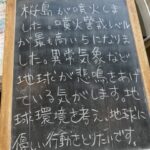 桜島が噴火しま
した。噴火警戒レベル
が最も高い5となりま
した。異常気象など
地球が悲鳴をあげ
ている気がします。地
球環境を考え、地球に
優しい行動をとりたいです。